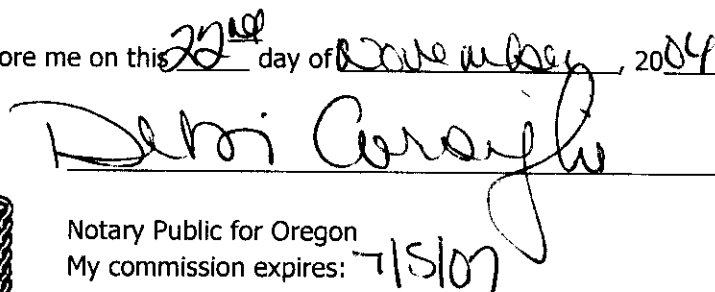 ore me on this 22nd day of November, 2004
Debi Corsiglia
Notary Public for Oregon
My commission expires: 7/5/07